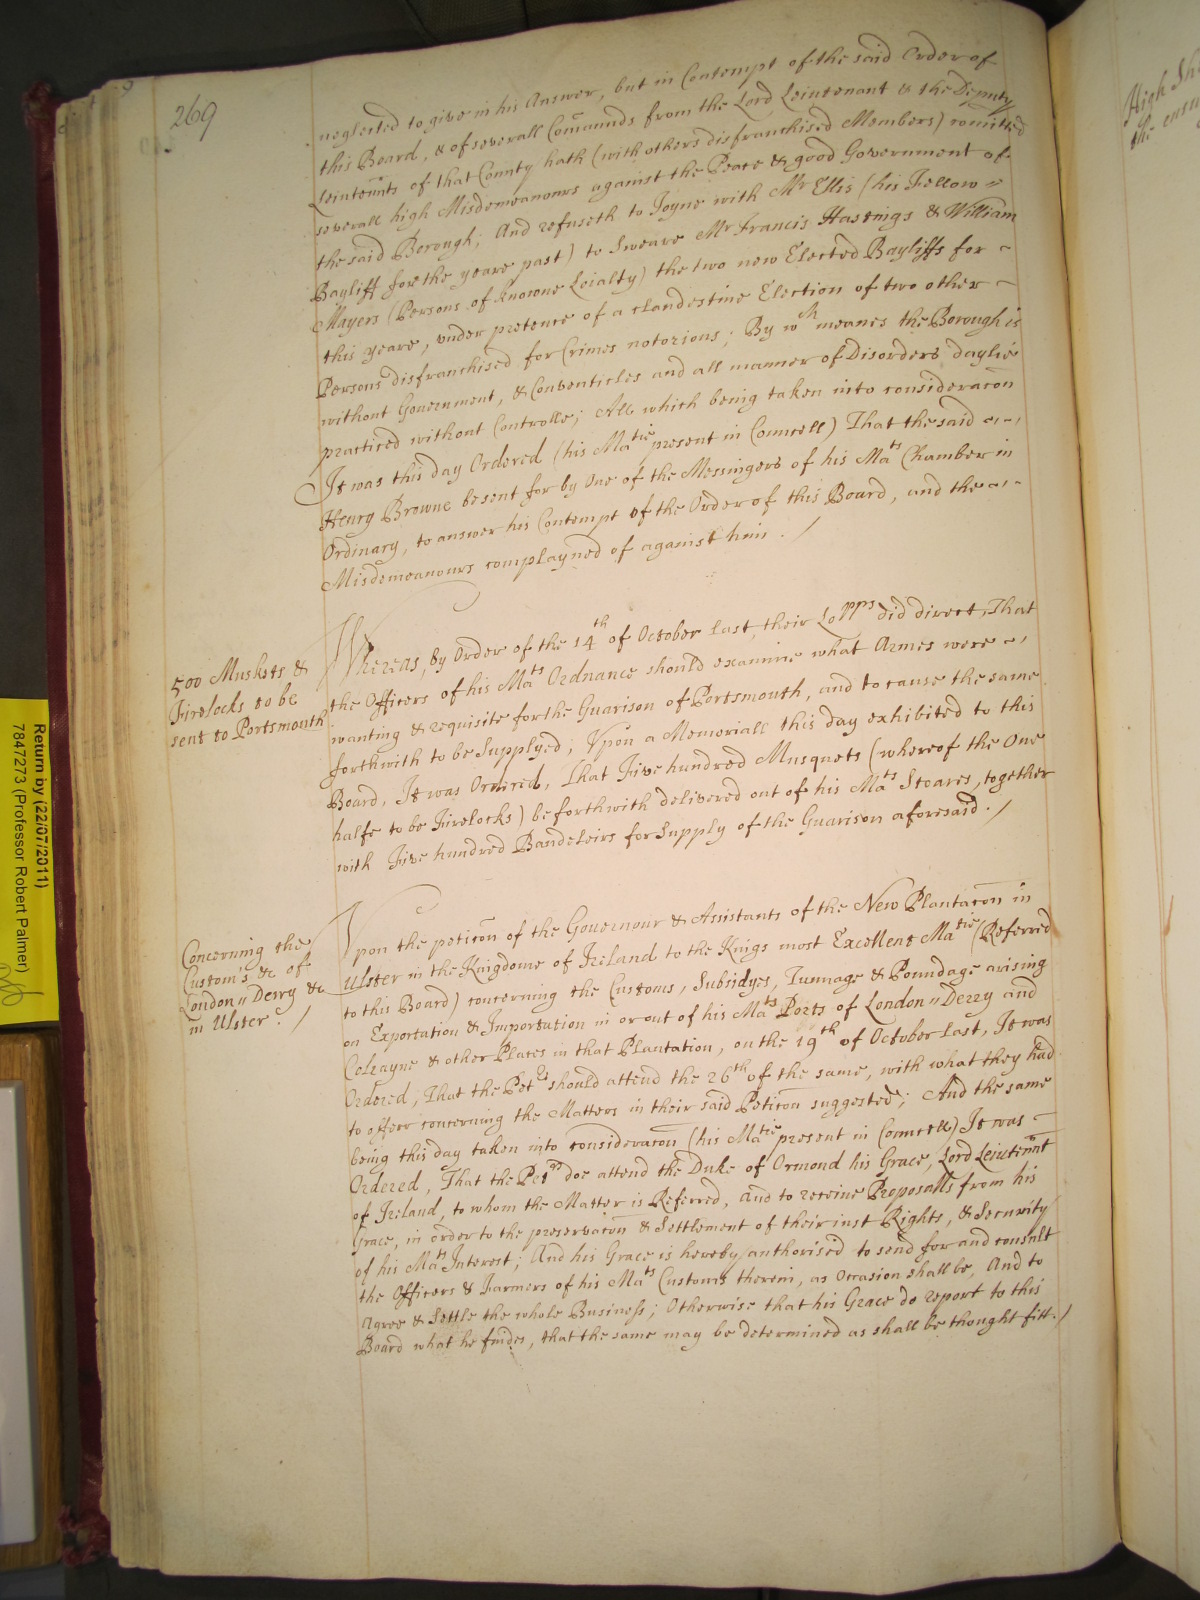 269
neglected to give in his Answer, but in Contempt of the said Order of
this Board, & of severall Comands from the Lord Leiutenant & the Deputy
Leiuten̄nts of that County hath (with others disfranchised Members) comitted
severall high Misdemeanours against the Peace & good Government of
the said Borough; And refuseth to Joyne with Mr Ellis (his Fellow =
Bayliff for the yeare past) to Sweare Mr Francis Hastings & William
Mayers (Persons of knowne Loialty) the two new Elected Bayliffs for ~
this yeare, under pretence of a clandestine Election of two other ~
Persons disfranchised for Crimes notorious; By wch meanes the Borough is
without Government, & Conventicles and all manner of Disorders daylie
practiced without Controlle; All which being taken into consideracōn
It was this day Ordered (his Matie present in Councell) That the said ~ ~
Henry Browne be sent for by One of the Messingers of his Mats Chamber in
Ordinary, to answer his Contempt of the Order of this Board, and the ~ ~
Misdemeanours complayned of against him . /
500 Muskets &
Firelocks to be
sent to Portsmouth
Whereas, By Order of the 14th of October last, their Lopps did direct, That
the Officers of his Mats Ordnance should examine what Armes were ~ ~
wanting & requisite for the Guarison of Portsmouth, and to cause the same
forthwith to be Supplyed; Upon a Memoriall this day exhibited to this
Board, It was Ordered, That Five hundred Musquets (whereof the One
halfe to be Firelocks) be forthwith delivered out of his Mats Stoares, together
with Five hundred Bandeleirs for Supply of the Guarison aforesaid . /
Concerning the
Custom's &c of
London=Derry &c
in Ulster . /
Upon the peticōn of the Governour & Assistants of the New Plantacōn in
Ulster in the Kingdome of Ireland to the Kings most Excellent Matie (Referred
to this Board) concerning the Customs, Subsidyes, Tunnage & Poundage arising
on Exportation & Importation in or out of his Mats Ports of London=Derry and
Colrayne & other Places in that Plantation, on the 19th of October last, It was
Ordered, That the Petrs should attend the 26th of the same, with what they had
to offer concerning the Matters in their said Peticōn suggested; And the same
being this day taken into consideracōn (his Matie present in Councell) It was ~
Ordered, That the Petrs doe attend the Duke of Ormond his Grace, Lord Leiutennt
of Ireland, to whom the Matter is Referred, and to receive Proposalls from his
Grace, in order to the preservacōn & Settlement of their iust Rights, & Security
of his Mats Interest; And his Grace is hereby authorised to send for and consult
the Officers & Farmers of his Mats Customs therein, as Occasion shall be, And to
agree & Settle the whole Business; Otherwise that his Grace do report to this
Board what he findes, that the same may be determined as shall be thought fitt . /
High She
the ensu
Return by (22/07/2011)
7847273 (Professor Robert Palmer)